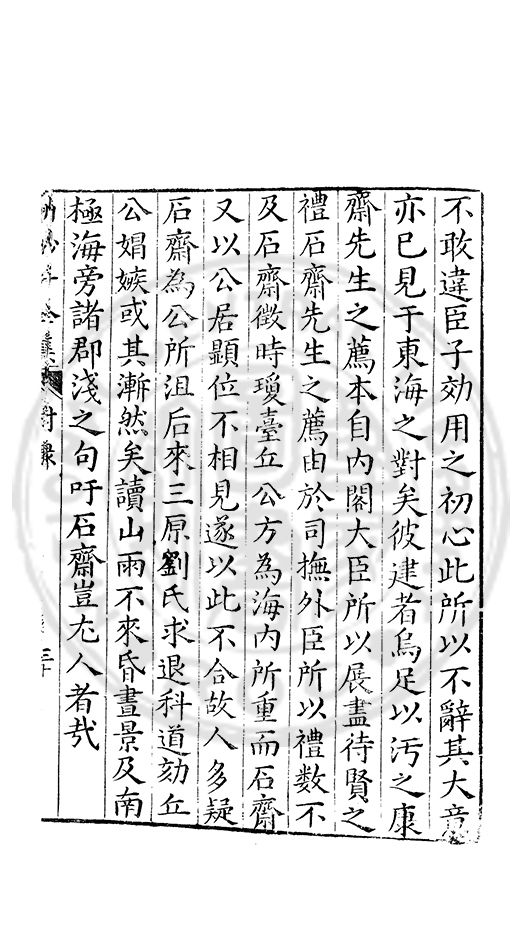 不敢違臣子効用之初心此所以不辭其大意
亦已見于東海之對矣彼建者烏足以污之康
齋先生之薦本自內閣大臣所以展盡待賢之
禮石齋先生之薦由於司撫外臣所以禮數不
及石齋徵時瓊臺丘公方為海內所重而石齋
又以公居顯位不相見遂以此不合故人多疑
石齋為公所沮后來三原劉氏求退科道劾丘
公娼嫉或其漸然矣讀山雨不來昏晝景及南
極海旁諸郡淺之句吁石齋豈尤人者㢤
三十